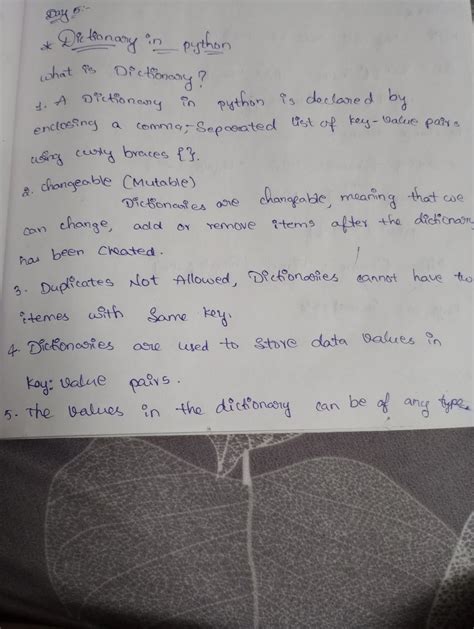 Day 5:-
* Dictionary in python
what is Dictionary?
1. A Dictionary in python is declared by
enclosing a comma-Separated list of key-value pairs
using curly braces {}.
2. changeable (Mutable)
Dictionaries are changeable, meaning that we
can change, add or remove items after the dictionary
has been created.
3. Duplicates Not Allowed, Dictionaries cannot have two
itemes with Same key.
4. Dictionaries are used to store data values in
key: value pairs.
5. The values in the dictionary can be of any type.